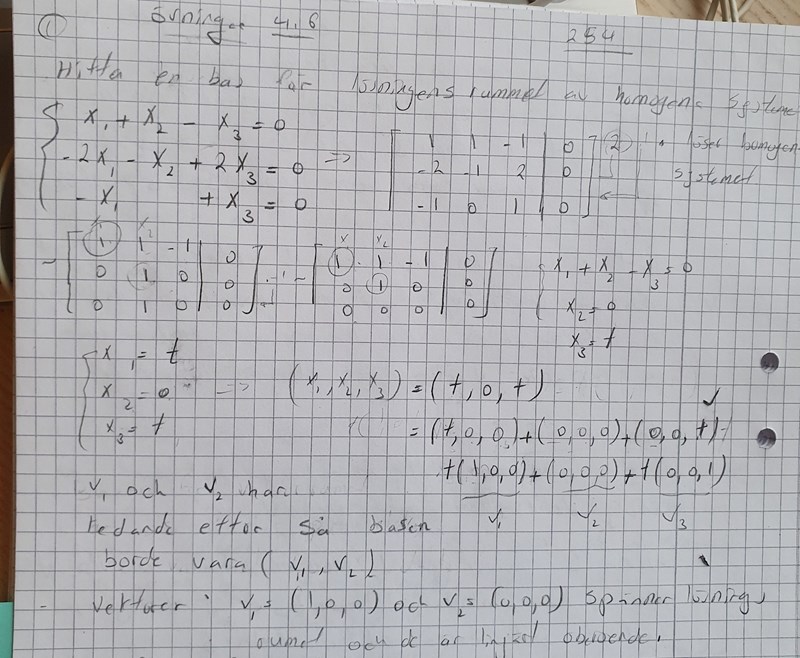 ① övningar 4.6
254
Hitta en bas för lösningens rummel av homogena systemet
x₁ + x₂ - x₃ = 0
-2x₁ - x₂ + 2x₃ = 0 ⇒
-x₁ + x₃ = 0
[ 1 1 -1 | 0 ] ②
[ -2 -1 2 | 0 ]
[ -1 0 1 | 0 ]
löser homogen
systemet
~ [ 1 1 -1 | 0 ]
[ 0 1 0 | 0 ] -1
[ 0 1 0 | 0 ]
x₁ x₂
~ [ 1 1 -1 | 0 ]
[ 0 1 0 | 0 ]
[ 0 0 0 | 0 ]
x₁ + x₂ - x₃ = 0
x₂ = 0
x₃ = t
x₁ = t
x₂ = 0 ⇒ (x₁, x₂, x₃) = (t, 0, t)
x₃ = t
= (t,0,0)+(0,0,0)+(0,0,t)
t(1,0,0)+(0,0,0)+t(0,0,1)
v₁ v₂ v₃
v₁ och v₂ har
ledande ettor så basen
borde vara (v₁, v₂)
- Vektorer v₁ = (1,0,0) och v₂ = (0,0,0) spänner lösnings
rummel och de är linjärt oberoende.